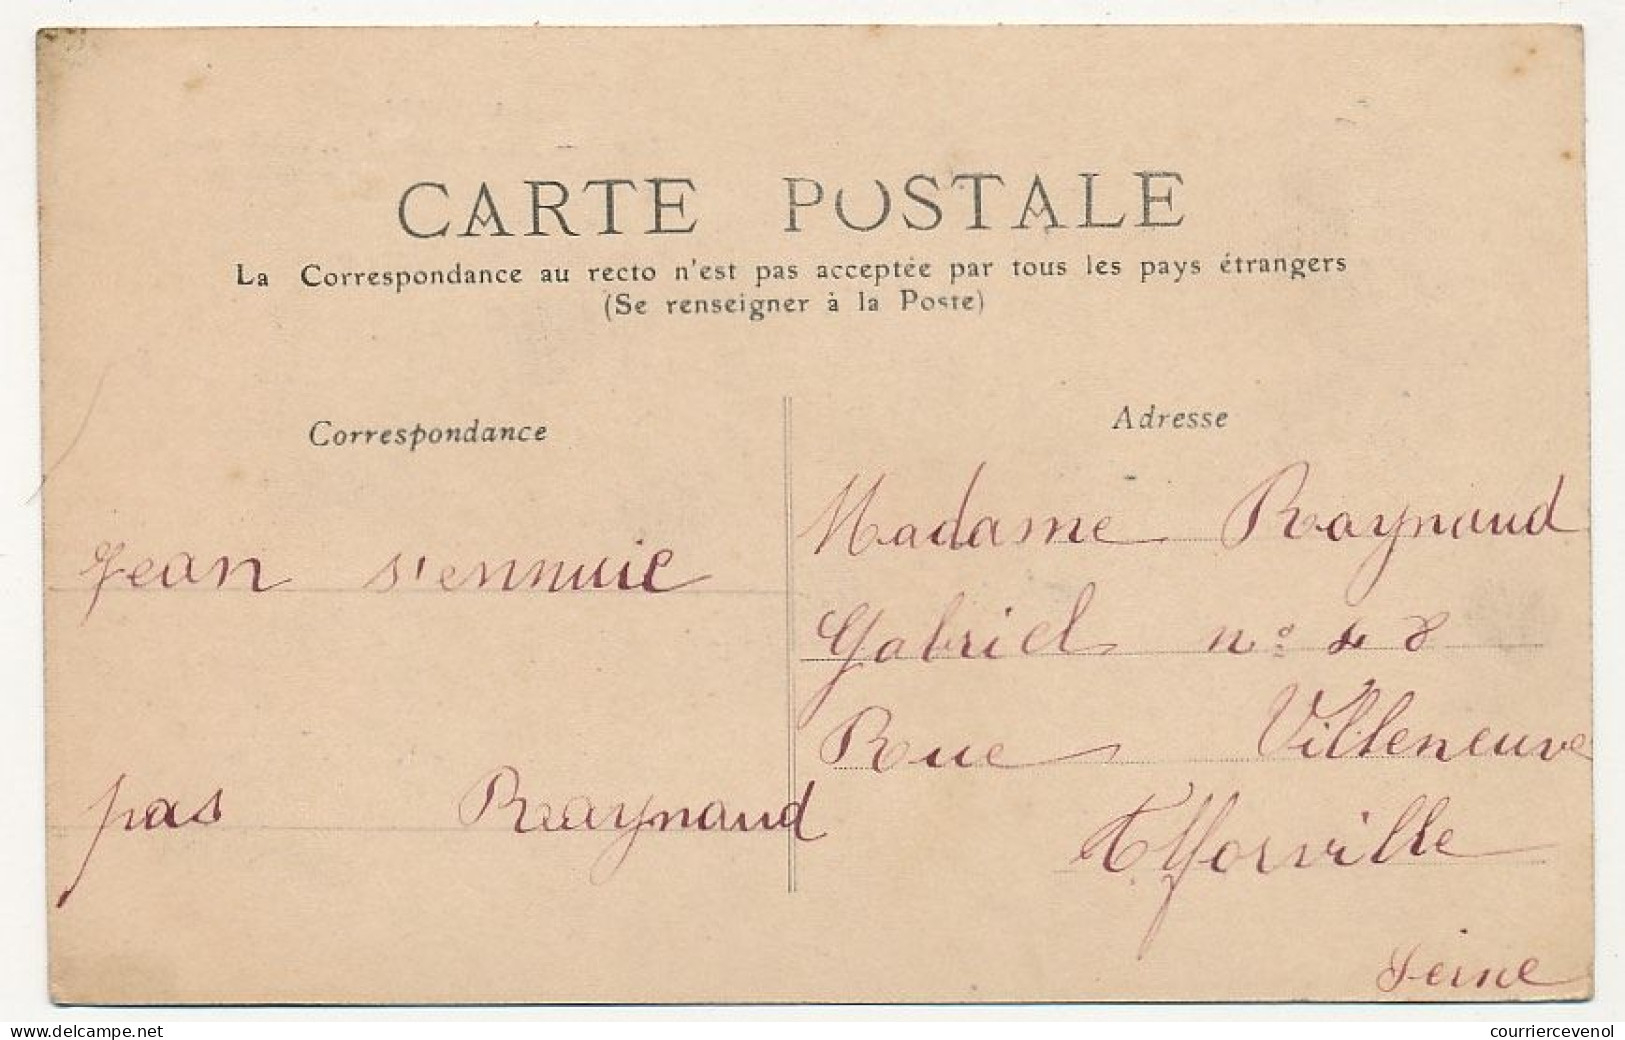 CARTE POSTALE
La Correspondance au recto n'est pas acceptée par tous les pays étrangers
(Se renseigner à la Poste)
Correspondance
Jean s'ennuie
pas Raynaud
Adresse
Madame Raynaud
Gabriel n° 48
Rue Villeneuve
Alforville
Seine
delcampe.net
courriercevenol